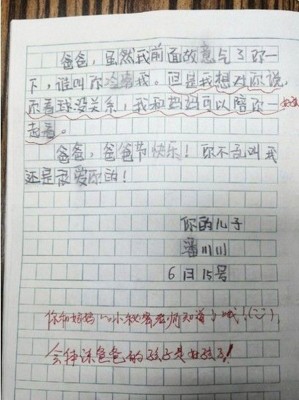 爸爸,虽然我前面故意气了你一
下,谁叫你冷落我。但是我想对你说,
你看球没关系,我和妈妈可以陪你一
起看。
爸爸,爸爸节快乐!你不乱叫我
还是很爱你的!
你的儿子
潘川川
6月15号
你和妈妈的小秘密老师知道了哦!
会体谅爸爸的孩子是好孩子!